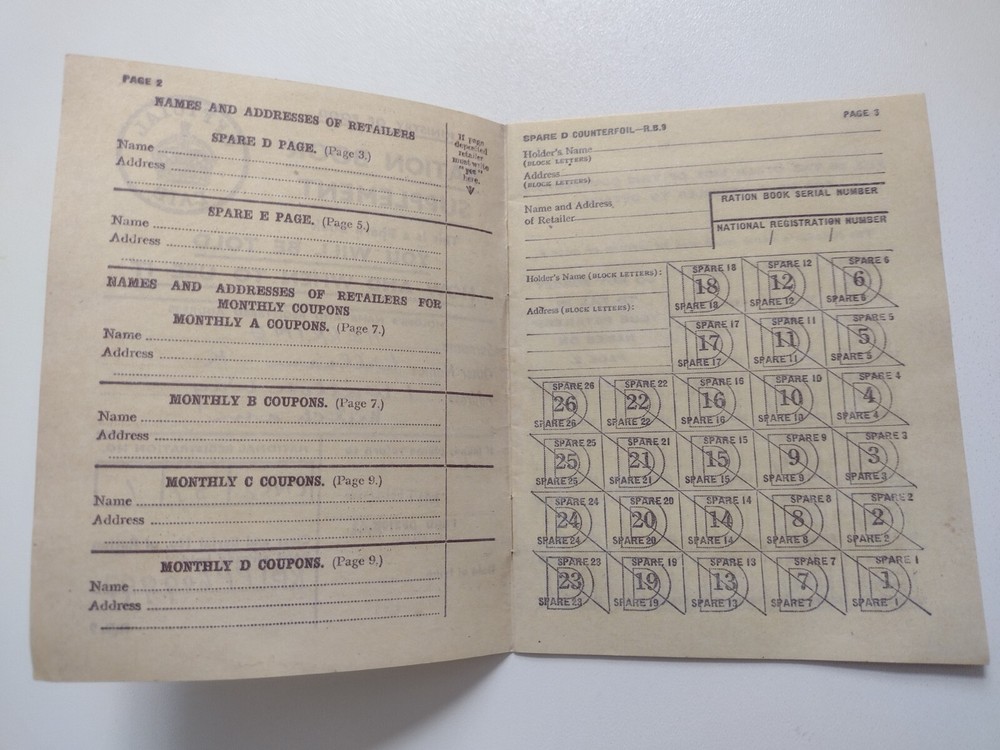 PAGE 2
NAMES AND ADDRESSES OF RETAILERS
If page
deposited
retailer
must write
"yes"
here.
SPARE D PAGE. (Page 3.)
Name
Address
SPARE E PAGE. (Page 5.)
Name
Address
NAMES AND ADDRESSES OF RETAILERS FOR
MONTHLY COUPONS
MONTHLY A COUPONS. (Page 7.)
Name
Address
MONTHLY B COUPONS. (Page 7.)
Name
Address
MONTHLY C COUPONS. (Page 9.)
Name
Address
MONTHLY D COUPONS. (Page 9.)
Name
Address
PAGE 3
SPARE D COUNTERFOIL—R.B.9
Holder's Name
(BLOCK LETTERS)
Address
(BLOCK LETTERS)
Name and Address
of Retailer
RATION BOOK SERIAL NUMBER
NATIONAL REGISTRATION NUMBER
Holder's Name (BLOCK LETTERS):
Address (BLOCK LETTERS):
SPARE 18 SPARE 12 SPARE 6
18 12 6
SPARE 18 SPARE 12 SPARE 6
SPARE 17 SPARE 11 SPARE 5
17 11 5
SPARE 17 SPARE 11 SPARE 5
SPARE 26 SPARE 22 SPARE 16 SPARE 10 SPARE 4
26 22 16 10 4
SPARE 26 SPARE 22 SPARE 16 SPARE 10 SPARE 4
SPARE 25 SPARE 21 SPARE 15 SPARE 9 SPARE 3
25 21 15 9 3
SPARE 25 SPARE 21 SPARE 15 SPARE 9 SPARE 3
SPARE 24 SPARE 20 SPARE 14 SPARE 8 SPARE 2
24 20 14 8 2
SPARE 24 SPARE 20 SPARE 14 SPARE 8 SPARE 2
SPARE 23 SPARE 19 SPARE 13 SPARE 7 SPARE 1
23 19 13 7 1
SPARE 23 SPARE 19 SPARE 13 SPARE 7 SPARE 1